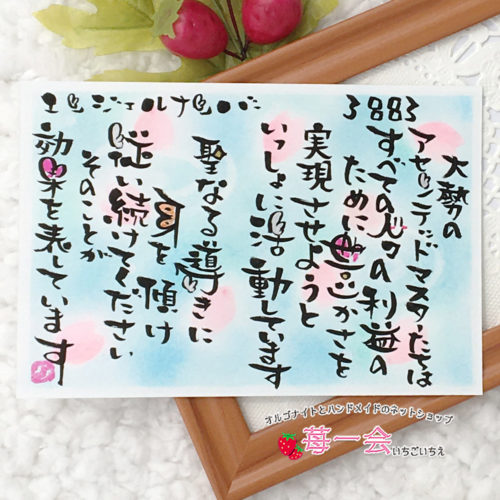 エンジェルナンバー 3883
大勢の
アセンデッドマスターたちは
すべての人々の利益の
ために豊かさを
実現させようと
いっしょに活動しています
聖なる導きに
耳を傾け
従い続けてください
そのことが
効果を表しています
オルゴナイトとハンドメイドのネットショップ
苺一会 いちごいちえ